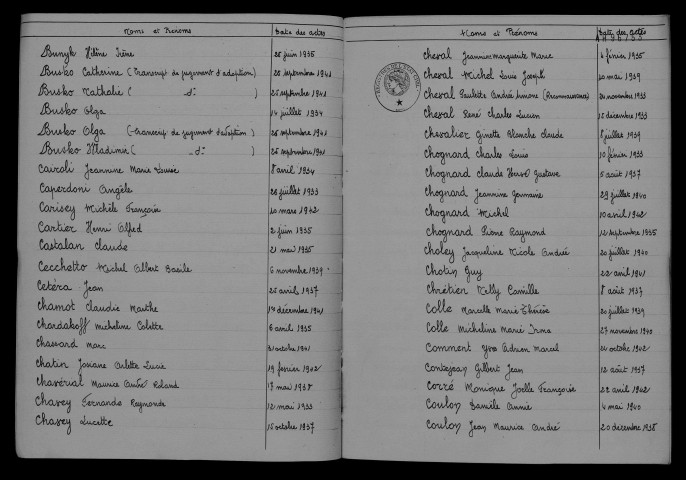 Noms et Prénoms Date des actes
Bunyk Hélène Irène 28 juin 1935
Busko Catherine (Transcript de jugement d'adoption) 26 septembre 1941
Busko Nathalie ( -d°- ) 26 septembre 1941
Busko Olga 14 juillet 1934
Busko Olga (transcrip de jugement d'adoption) 26 septembre 1941
Busko Wladimir ( -d°- ) 26 septembre 1941
Cairoli Jeannine Marie Louise 8 avril 1934
Caperdoni Angèle 28 juillet 1933
Carisey Michèle Françoise 20 mars 1942
Cartier Henri Alfred 2 juin 1935
Castalan Claude 21 mai 1935
Cecchetto Michel Albert Basile 6 novembre 1939
Cetéra Jean 25 avril 1937
Chamot Claudie Marthe 1er décembre 1941
Chardakoff Micheline Colette 6 avril 1935
Chassard Marc 31 octobre 1941
Chatin Josiane Arlette Lucie 19 février 1942
Chavérial Maurice André Roland 17 mai 1938
Chavey Fernande Raymonde 12 mai 1933
Chavey Lucette 15 octobre 1937
Noms et Prénoms Date des actes
Cheval Jeannine Marguerite Marie 4 février 1935
Cheval Michel Louis Joseph 20 mai 1939
Cheval Paulette Andrée Simone (Reconnaissance) 20 novembre 1933
Cheval René Charles Lucien 15 décembre 1933
Chevalier Ginette Blanche Claude 8 juillet 1939
Chognard Charles Louis 10 février 1933
Chognard Claude Hervé Gustave 5 août 1937
Chognard Jeannine Germaine 29 juillet 1940
Chognard Michel 10 avril 1942
Chognard Pierre Raymond 12 septembre 1935
Choley Jacqueline Nicole Andrée 20 juillet 1940
Chotin Guy 22 avril 1941
Chrétien Nelly Camille 8 août 1937
Colle Marcelle Marie Thérèse 20 juillet 1939
Colle Micheline Marie Irma 27 novembre 1940
Comment Yves Adrien Marcel 24 octobre 1942
Contejean Gilbert Jean 12 août 1937
Corré Monique Joelle Françoise 22 avril 1942
Coulon Danièle Annie 4 mai 1940
Coulon Jean Maurice André 20 décembre 1938